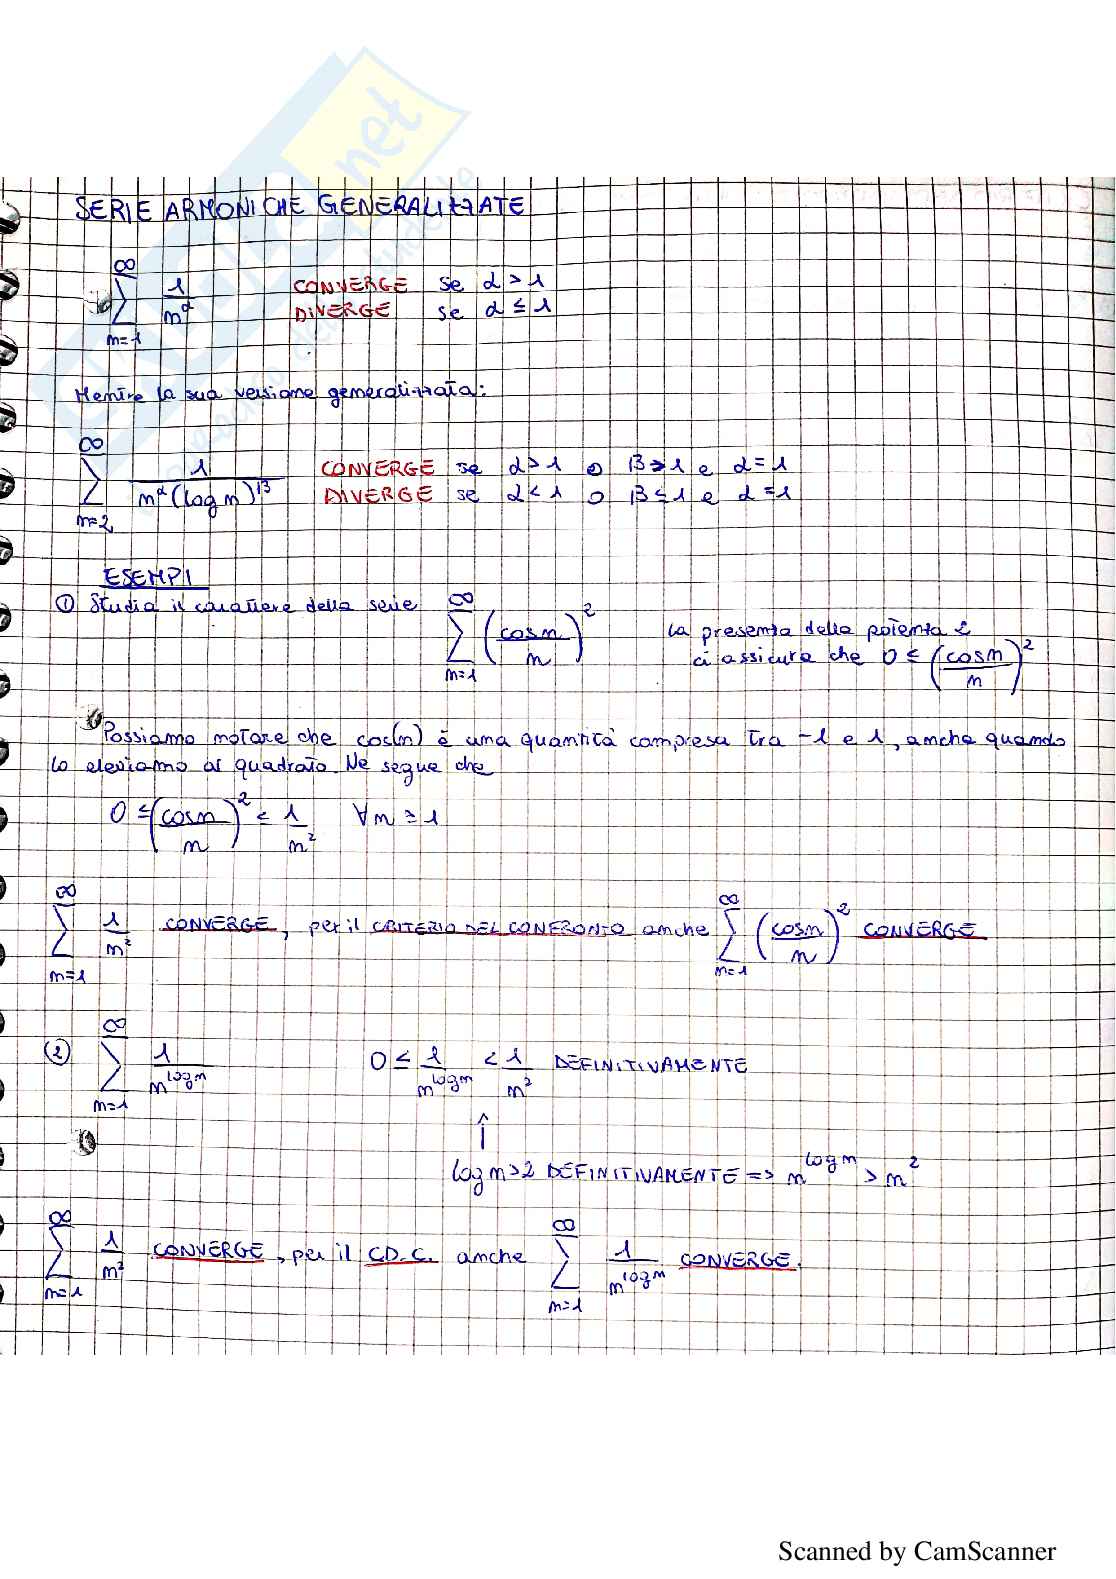 SERIE ARMONICHE GENERALIZZATE
∞
∑ 1/n^α CONVERGE se α > 1
n=1 DIVERGE se α ≤ 1
Mentre la sua versione generalizzata:
∞
∑ 1/(n^α (log n)^β) CONVERGE se α > 1 o β > 1 e α = 1
n=2 DIVERGE se α < 1 o β ≤ 1 e α = 1
ESEMPI
① Studia il carattere della serie ∑_{n=1}^{∞} (cos n / n)^2 la presenza della potenza 2
ci assicura che 0 ≤ (cos n / n)^2
Possiamo notare che cos(n) è una quantità compresa tra -1 e 1, anche quando
lo eleviamo al quadrato. Ne segue che
0 ≤ (cos n / n)^2 < 1/n^2 ∀n ≥ 1
∑_{n=1}^{∞} 1/n^2 CONVERGE, per il CRITERIO DEL CONFRONTO anche ∑_{n=1}^{∞} (cos n / n)^2 CONVERGE
② ∑_{n=1}^{∞} 1/n^{log n} 0 ≤ 1/n^{log n} < 1/n^2 DEFINITIVAMENTE
↑
log n > 2 DEFINITIVAMENTE => n^{log n} > n^2
∑_{n=1}^{∞} 1/n^2 CONVERGE, per il C.D.C. anche ∑_{n=1}^{∞} 1/n^{log n} CONVERGE.
Scanned by CamScanner